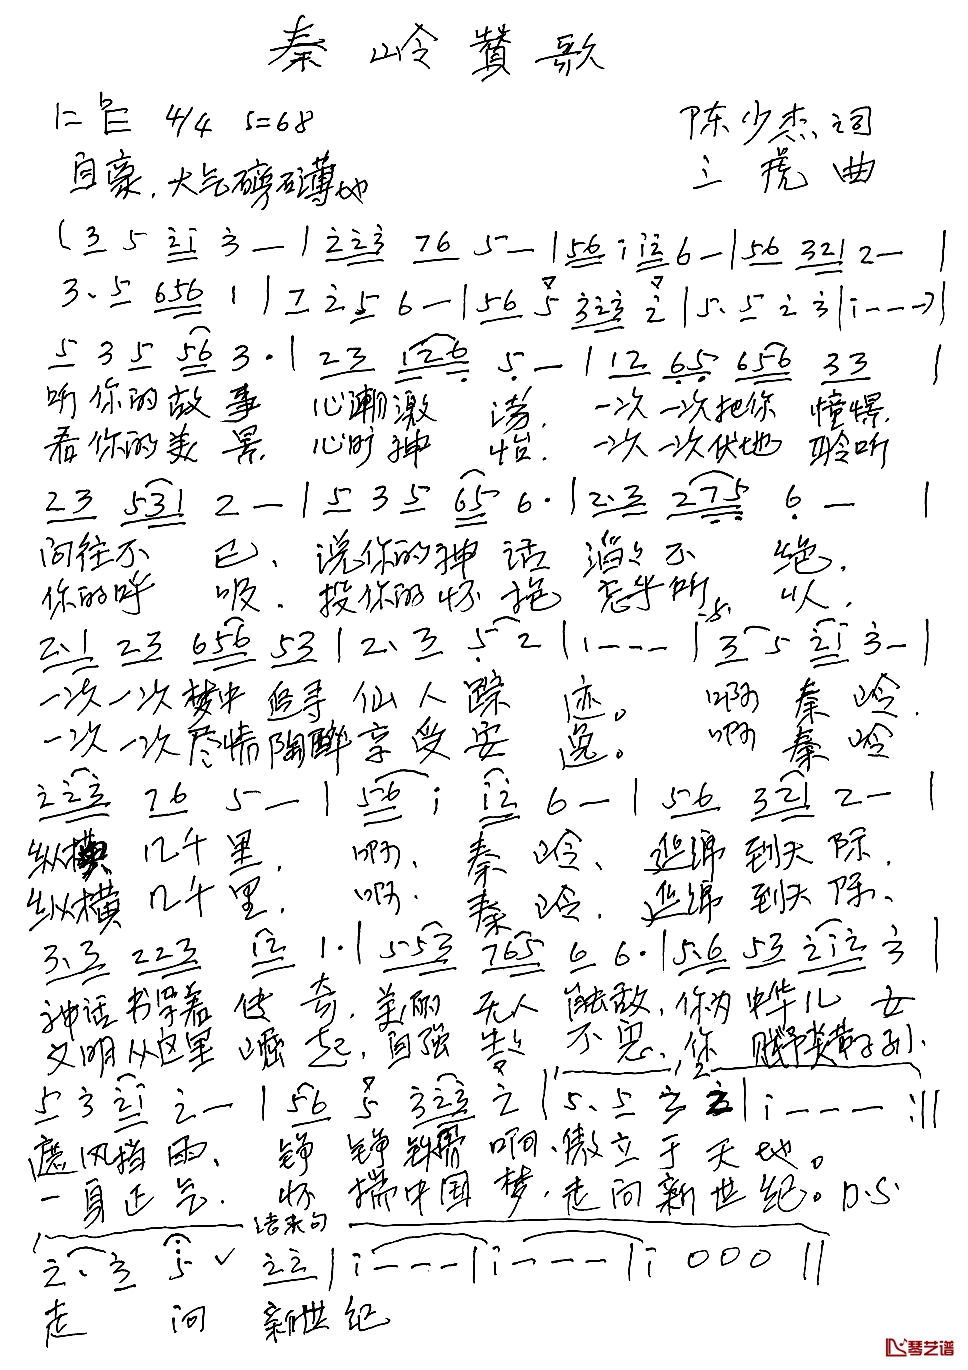 秦岭赞歌
1=ᵇE 4/4 5=68
陈少杰词
自豪、大气磅礴地
三虎曲
(3 5 2i 3 — | 223 76 5 — | 56 i i2 6 — | 56 321 2 — |
3. 5 656 1 | 7 2 5 6 — | 56 5 323 2 | 5. 5 2 3 | i - - - ) |
5 3 5 56 3 · | 23 126 5 · — | 12 65 656 33 |
听你的故事 心潮激荡. 一次一次把你 憧憬.
看你的美景. 心旷神怡. 一次一次伏地 聆听
23 531 2 — | 5 3 5 65 6 · | 2. 3 275 6 — |
向往不已、说你的神话 滔滔不绝.
你的呼吸、投你的怀抱 怎乎所以.
2. 1 23 656 53 | 2. 3 5 2 | 1 - - - | 3 5 2i 3 — |
一次一次梦中追寻仙人踪迹。啊 秦岭.
一次一次尽情陶醉享受安逸。啊 秦岭
223 76 5 — | 56 i i2 6 — | 56 321 2 — |
纵横 几千里. 啊. 秦岭、延绵到天际.
纵横 几千里. 啊. 秦岭. 延绵到天际、
3. 3 223 i2 1 · | 553 765 6 6 · | 5. 6 53 2i2 3 |
神话书写着传奇. 美丽无人能敌. 你为中华儿女
文明从这里崛起, 自强 不息、你
5 3 2i 2 — | 56 5 323 2 | 5. 5 3 2 | i - - - :||
遮风挡雨、铮铮铁骨啊、傲立于天地。
一身正气. 怀揣中国梦. 走向新世纪。D.S.
结束句
2. 3 5 ∨ 22 | i - - - | i - - - | i 0 0 0 ||
走向新世纪
琴艺谱